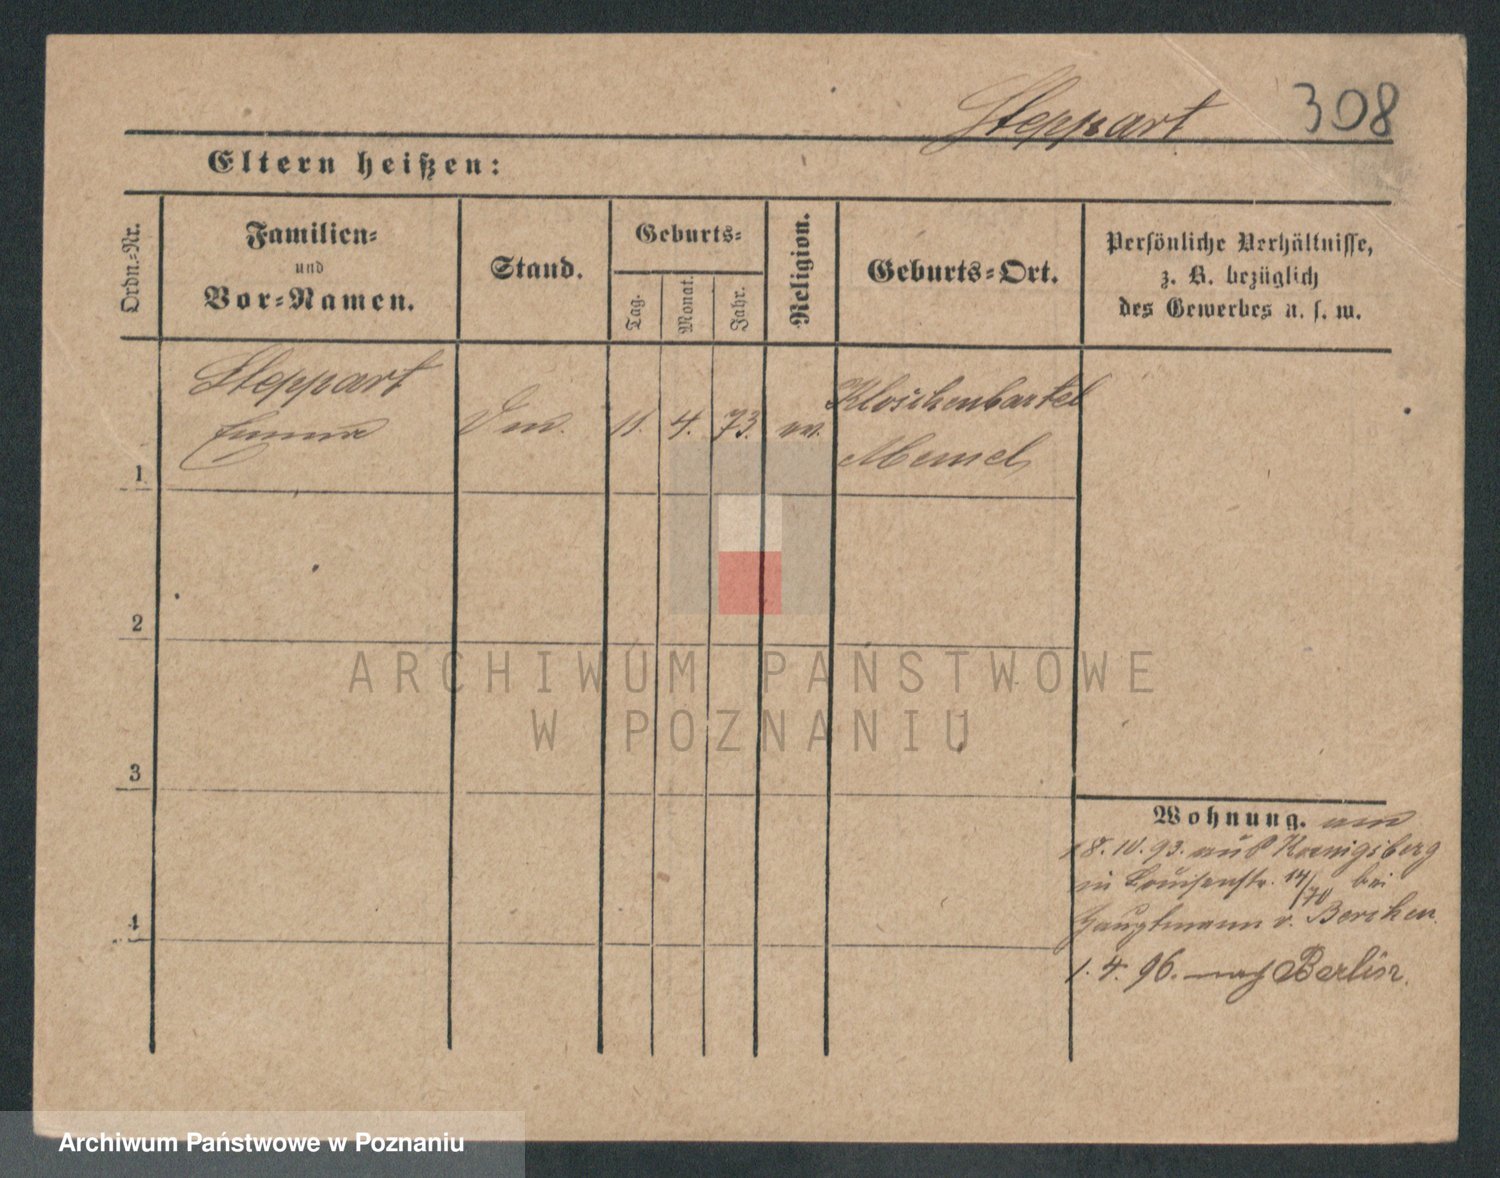 Steppart 308
Eltern heißen:
Ordn.-Nr.
Familien-
und
Vor-Namen.
Stand.
Geburts-
Tag.
Monat.
Jahr.
Religion.
Geburts-Ort.
Persönliche Verhältnisse,
z. B. bezüglich
des Gewerbes u. s. w.
Steppart
Emma
11. 4. 73. ev.
Kloschenbartel
Memel
1
2
3
4
ARCHIWUM PAŃSTWOWE
W POZNANIU
Wohnung.
18.10.93. aus Koenigsberg
in Louisenstr. 14/70 bei
Hauptmann v. Berchen.
1. 4. 96. nach Berlin.
Archiwum Państwowe w Poznaniu